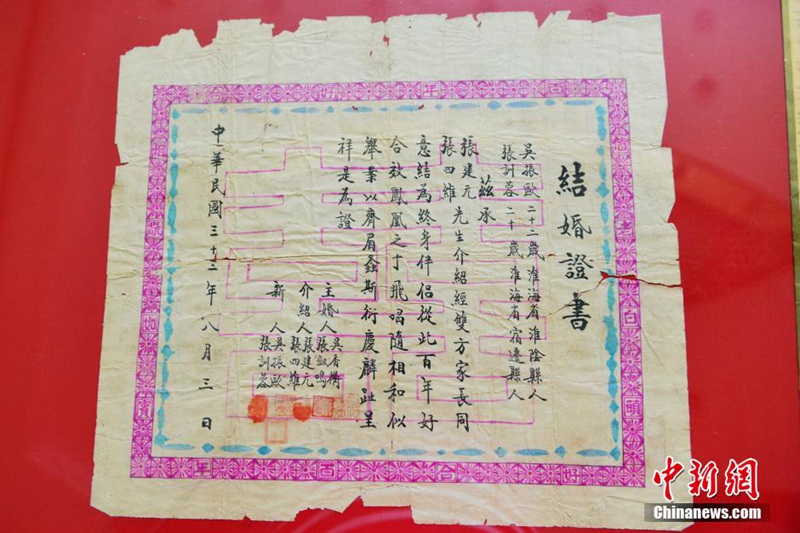 結婚證書
吳振歐二十二歲淮海省淮陰縣人
張訓蓉二十歲淮海省宿遷縣人
茲承
張建元
張四維
先生介紹經雙方家長同
意結為終身伴侶從此百年好
合效鳳凰之于飛唱隨相和似
舉案以齊眉螽斯衍慶麟趾呈
祥是為證
主婚人
吳香
張鳴
介紹人
張建元
張四維
新人
吳振歐
張訓蓉
中華民國三十二年八月三日
中新網
Chinanews.com